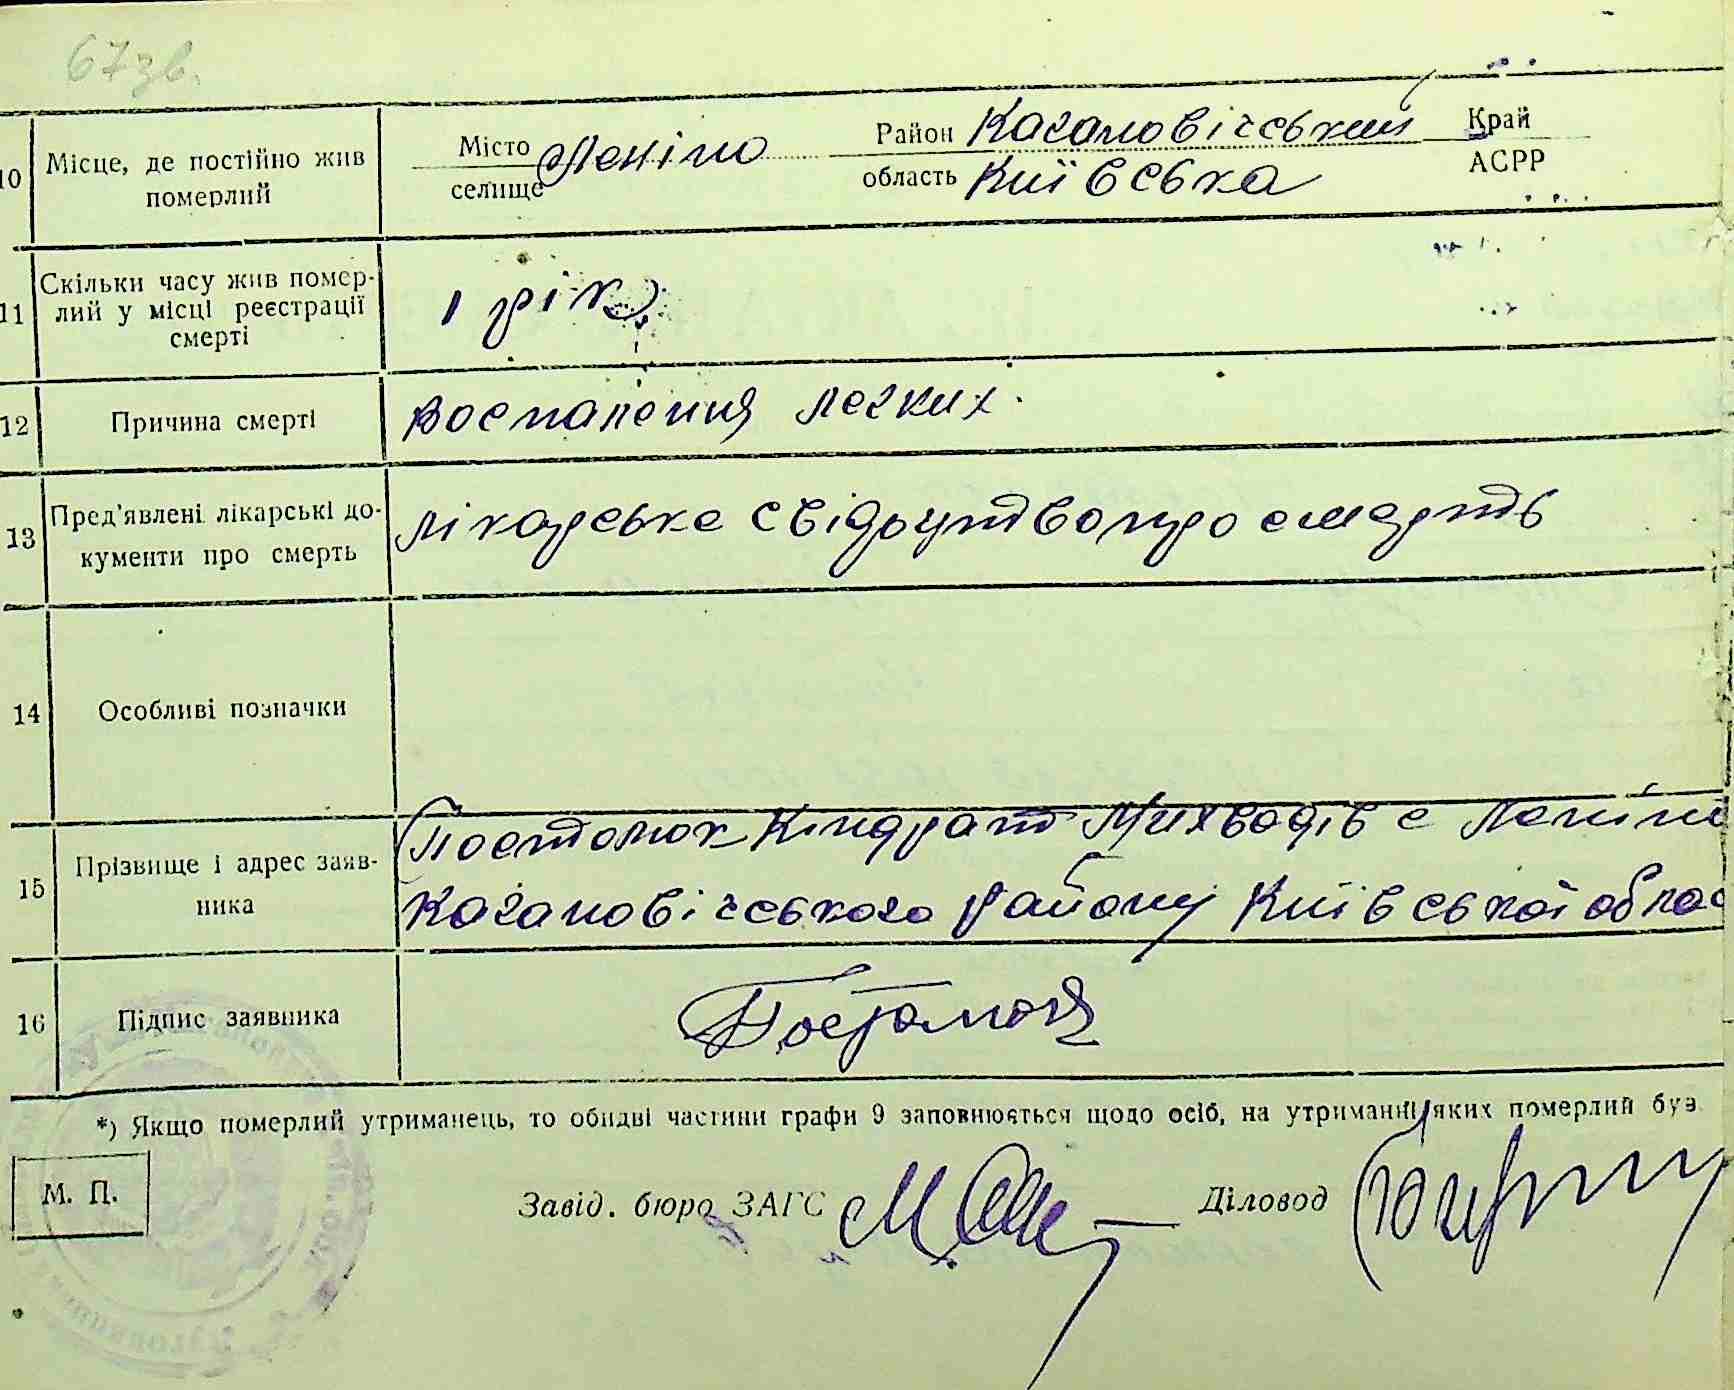 67зв.
10 Місце, де постійно жив померлий
Місто селище Леніно Район Кагановічський Край
область Київська АСРР
11 Скільки часу жив помер-
лий у місці реєстрації
смерті
1 рік
12 Причина смерті
Воспаления легких.
13 Пред’явлені лікарські до-
кументи про смерть
лікарське свідоцтво про смерть
14 Особливі позначки
15 Прізвище і адрес заяв-
ника
Постолюк Кіндрат с Леніно
Кагановічського району Київської облас
16 Підпис заявника
*) Якщо померлий утриманець, то обидві частини графи 9 заповнюється щодо осіб, на утриманні яких померлий був
М. П.
Завід. бюро ЗАГС
Діловод